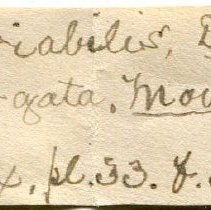 riabilis,
-gata, Mou
x, pl. 33. f.